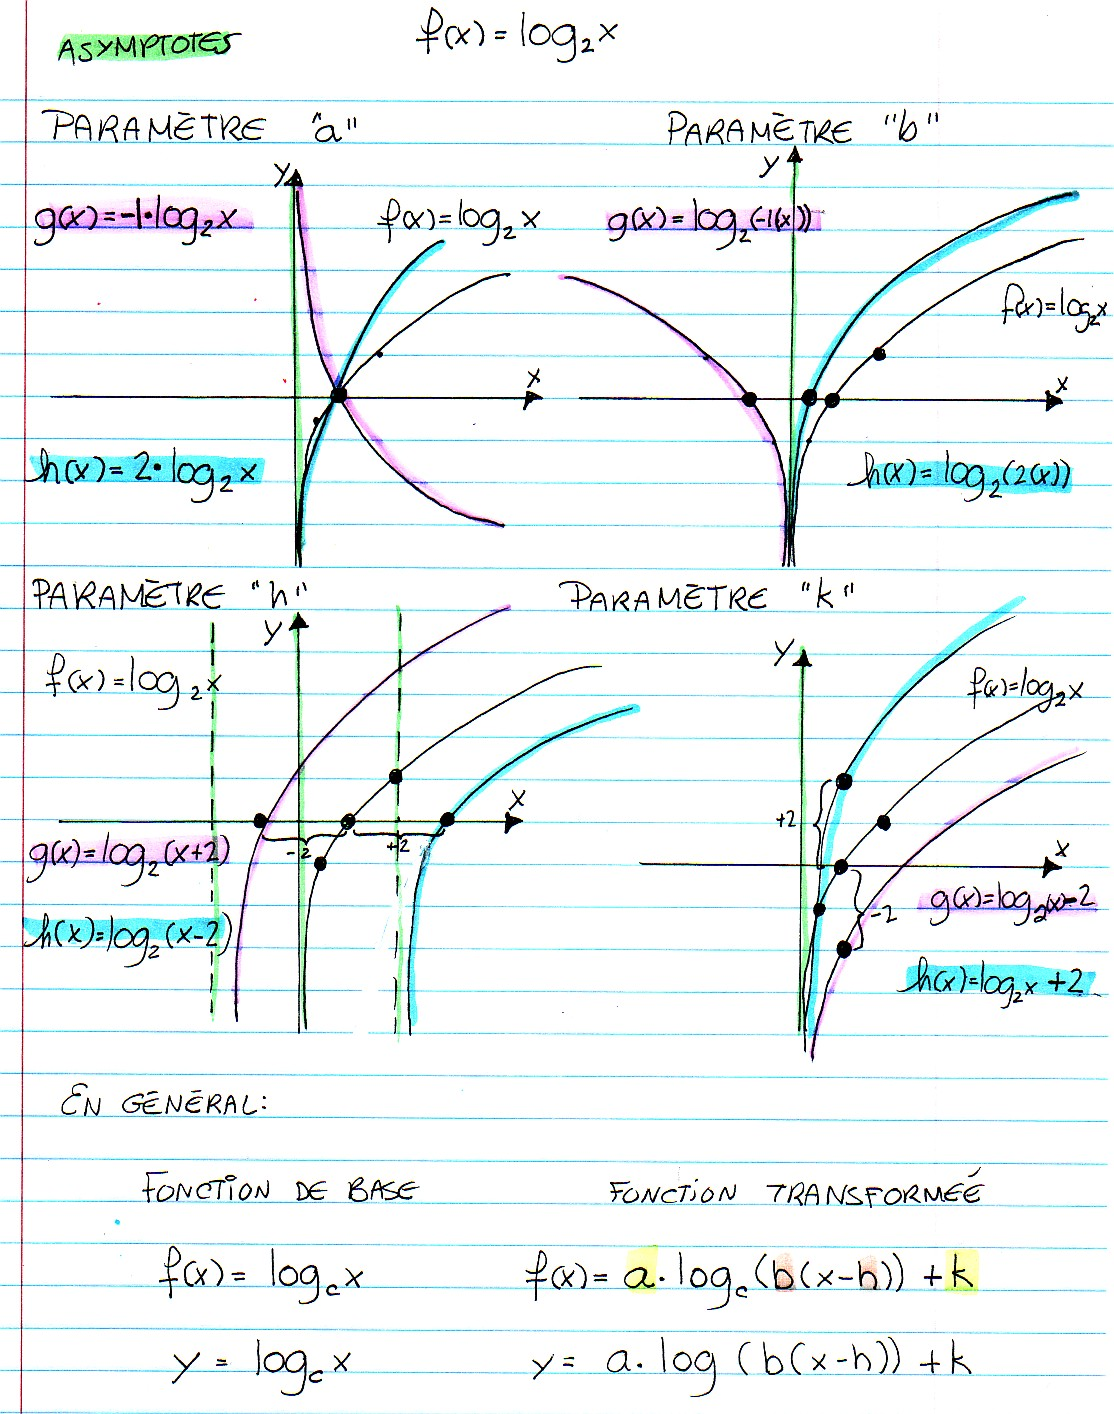 ASYMPTOTES
f(x) = log₂x
PARAMÈTRE "a"
PARAMÈTRE "b"
y
g(x)=-1·log₂x
f(x)=log₂x
x
h(x)=2·log₂x
y
g(x)=log₂(-1(x))
f(x)=log₂x
x
h(x)=log₂(2(x))
PARAMÈTRE "h"
PARAMÈTRE "k"
y
f(x)=log₂x
x
-2
+2
g(x)=log₂(x+2)
h(x)=log₂(x-2)
y
f(x)=log₂x
+2
x
-2
g(x)=log₂(x)-2
h(x)=log₂x +2
EN GÉNÉRAL:
FONCTION DE BASE
FONCTION TRANSFORMÉE
f(x) = log_c x
f(x) = a·log_c (b(x-h)) + k
y = log_c x
y = a·log (b(x-h)) + k